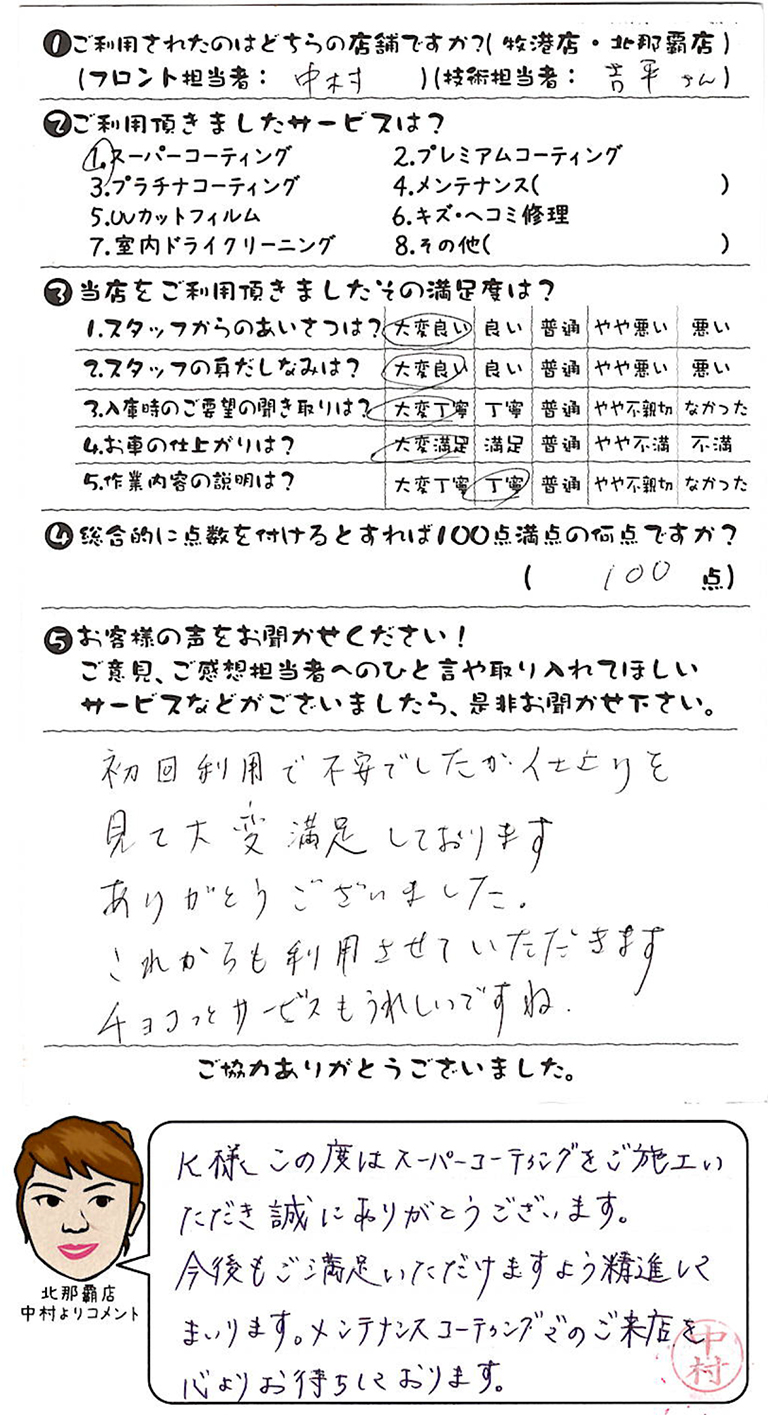 ❶ご利用されたのはどちらの店舗ですか?(牧港店・北那覇店)
(フロント担当者: 中村 )(技術担当者: 吉平 さん)
❷ご利用頂きましたサービスは?
1.スーパーコーティング 2.プレミアムコーティング
3.プラチナコーティング 4.メンテナンス( )
5.UVカットフィルム 6.キズ・ヘコミ修理
7.室内ドライクリーニング 8.その他( )
❸当店をご利用頂きましたその満足度は?
1.スタッフからのあいさつは? 大変良い 良い 普通 やや悪い 悪い
2.スタッフの身だしなみは? 大変良い 良い 普通 やや悪い 悪い
3.入庫時のご要望の聞き取りは? 大変丁寧 丁寧 普通 やや不親切 なかった
4.お車の仕上がりは? 大変満足 満足 普通 やや不満 不満
5.作業内容の説明は? 大変丁寧 丁寧 普通 やや不親切 なかった
❹総合的に点数を付けるとすれば100点満点の何点ですか?
( 100 点)
❺お客様の声をお聞かせください!
ご意見、ご感想担当者へのひと言や取り入れてほしい
サービスなどがございましたら、是非お聞かせ下さい。
初回利用で不安でしたが仕上りを
見て大変満足しております
ありがとうございました。
これからも利用させていただきます
チョコっとサービスもうれしいですね.
ご協力ありがとうございました。
K様 この度はスーパーコーティングをご施工い
ただき誠にありがとうございます。
今後もご満足いただけますよう精進して
まいります。メンテナンスコーティングでのご来店を
心よりお待ちしております。
中村
北那覇店
中村よりコメント